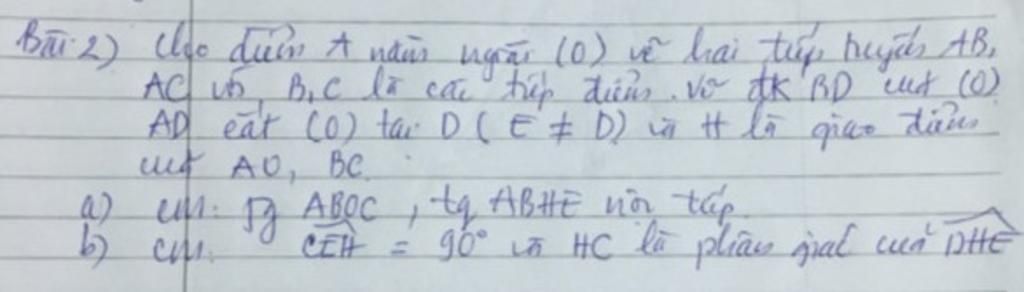 Bài 2) Cho điểm A nằm ngoài (O) vẽ hai tiếp tuyến AB,
AC với B, C là các tiếp điểm. Vẽ đk BD của (O)
AD cắt (O) tại D (E ≠ D) và H là giao điểm
của AO, BC.
a) cm: tg ABOC, tg ABHE nội tiếp
b) cm: \widehat{CEH} = 90° và HC là phân giác của \widehat{DHE}